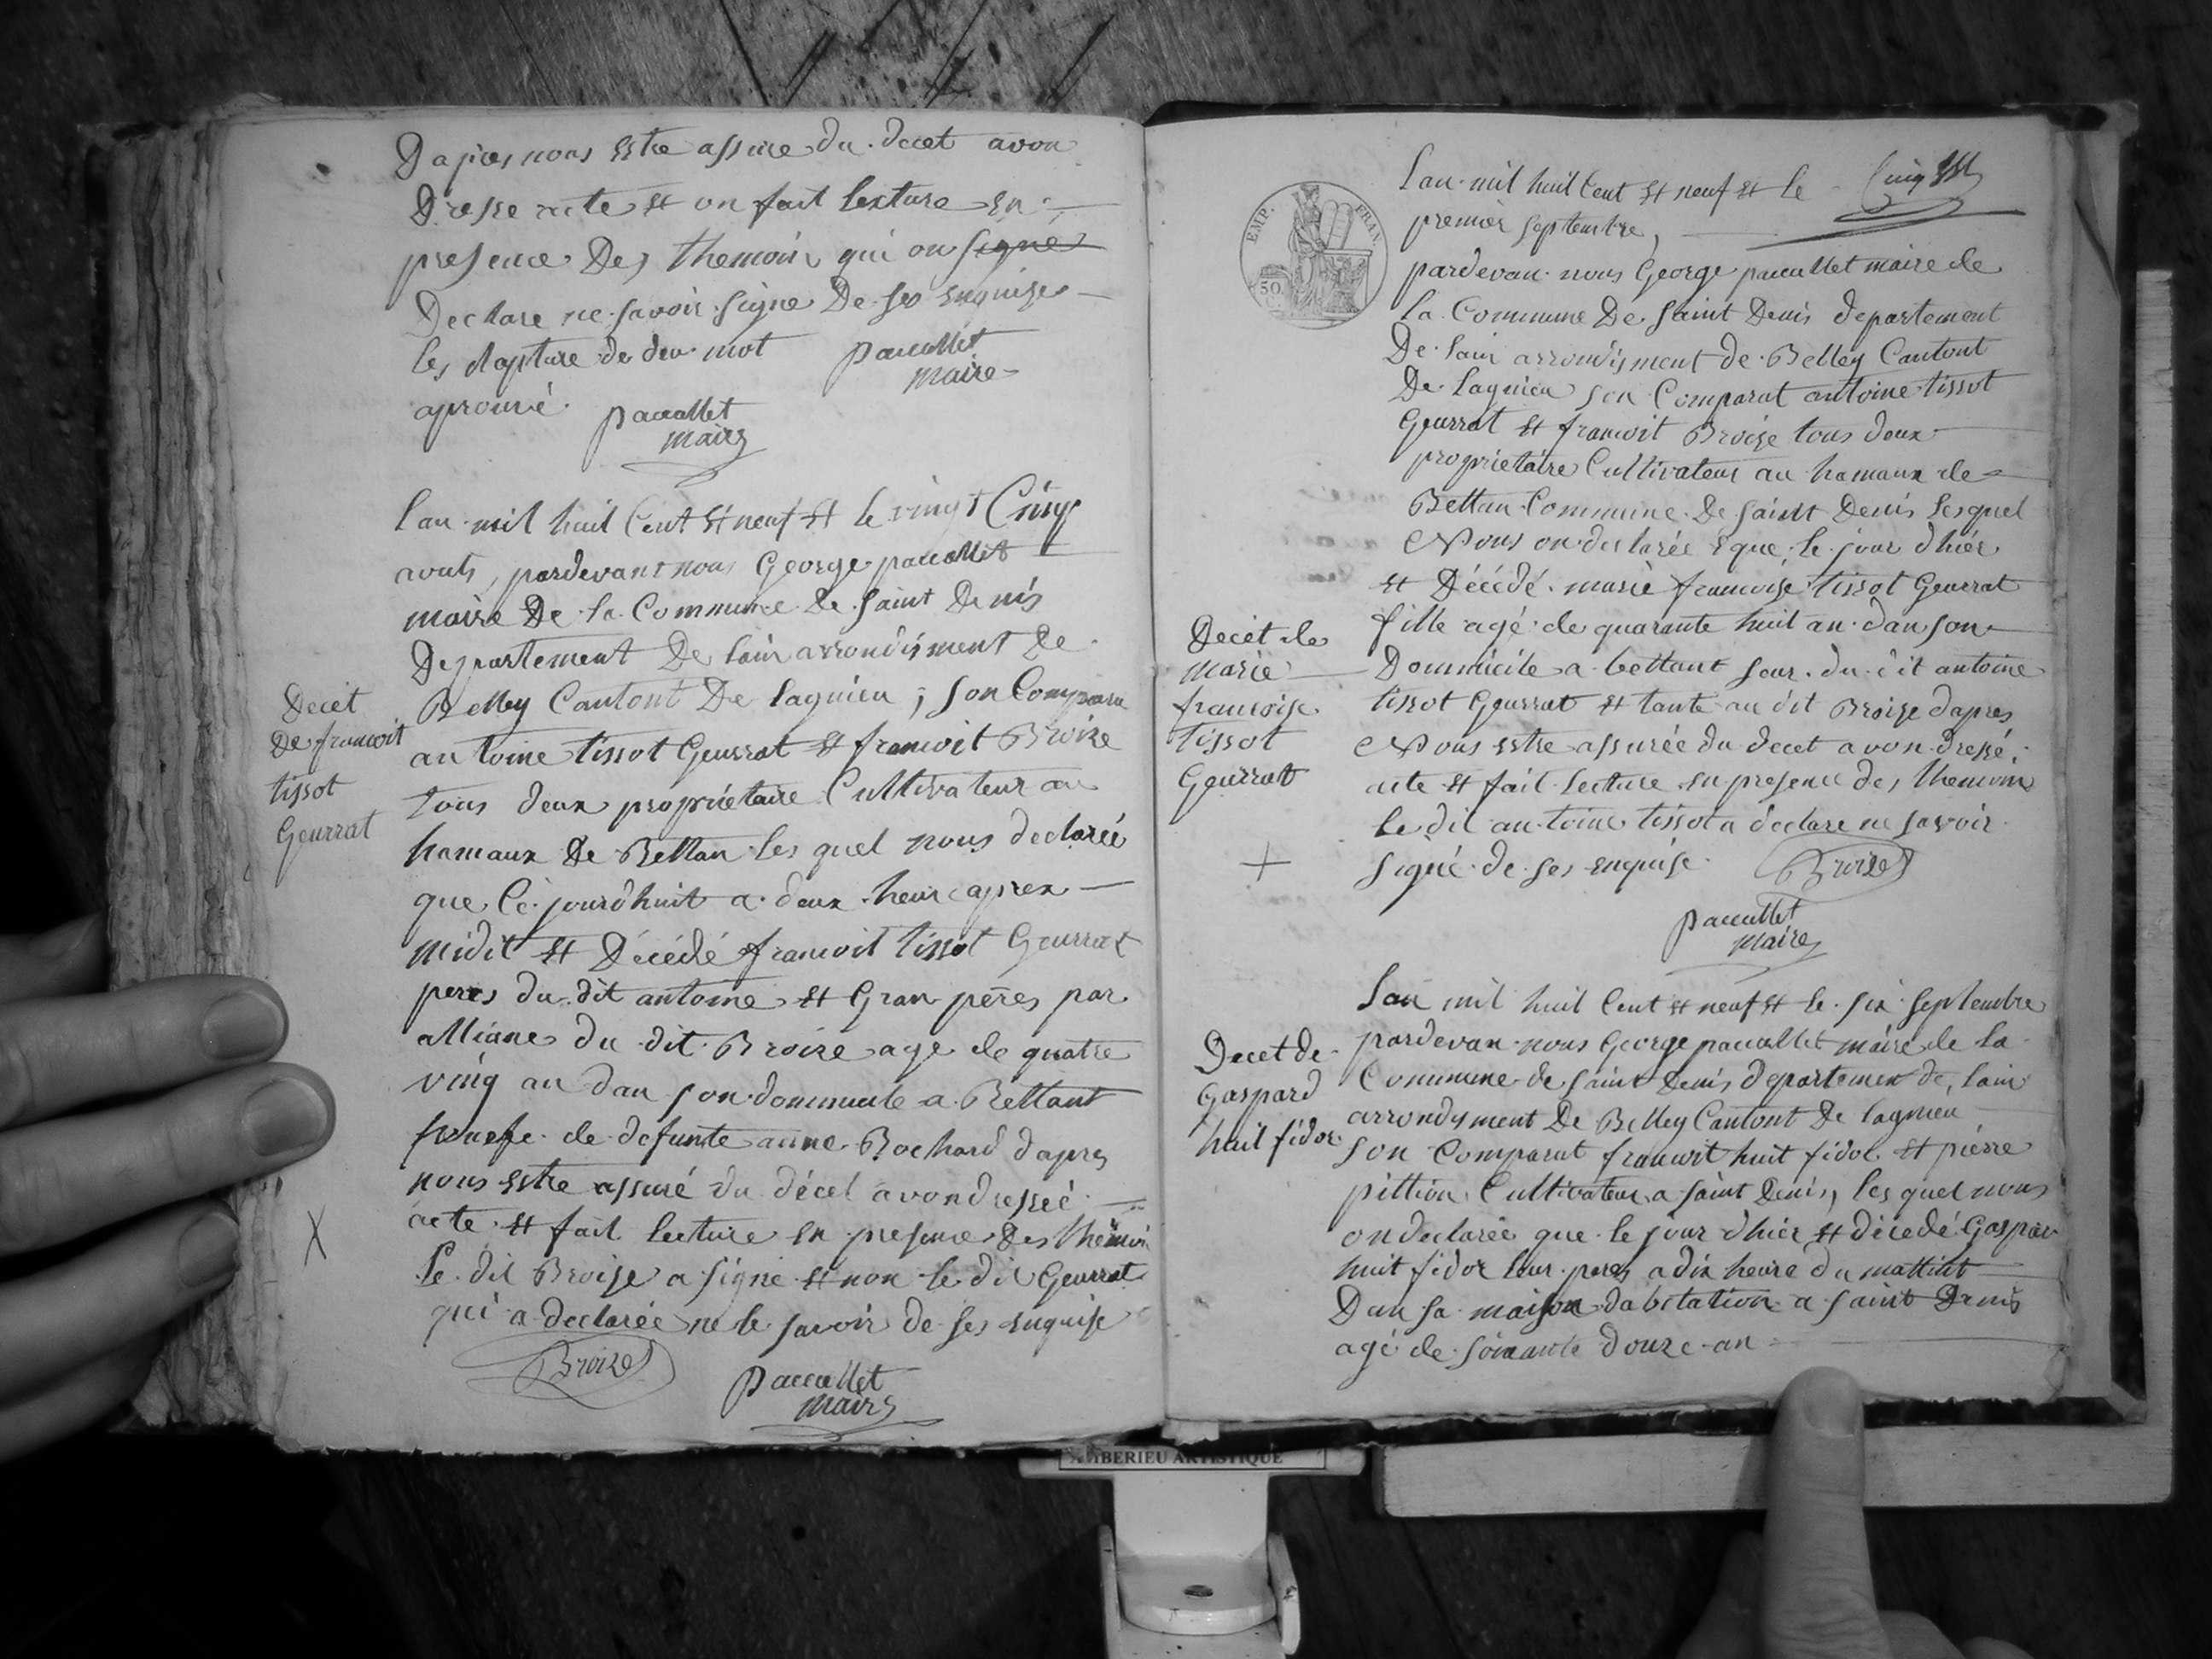 Dapres nous Estre assure du decet avon
Dresse acte Et on fait lecture En
presence Des themoin qui on signe
Declare ne savoir signe De ses Enquise
les rapture de deu mot paccallet
maire
aprouvé paccallet
maire
lan mil huil Cent Et neuf Et le vingt Cinq
aouts, pardevant nous George paccallet
maire De la Commune De saint Denis
Departement De lain arrondisment De
Belley Cantont De lagnieu ; son Comparu
antoine tissot Geurrat Et francoit Broize
tous deux proprietaire Cultivateur au
hamaux De Bettan les quel nous declareé
que Ce jourdhuit a deux heure aprex
midit Et Décédé francoit tissot Geurrat
peres du dit antoine Et Gran peres par
alliance du dit Broize age de quatre
ving an dan son dommicile a Bettant
de defunte anne Rochard dapres
nous Estre assuré du décet avon dresseé
acte Et fait lecture En presence Des themoin
le dit Broize a signe Et non le dit Geurrat
qui a declareé ne le savoir de ses Enquise
Broize
paccallet
maire
Decet
De francoit
tissot
Geurrat
X
EMP. FRAN.
50
lan mil huil Cent Et neuf Et le
premier septembre,
pardevan nous George paccallet maire de
la Commune De saint Denis departement
De lain arrondisment de Belley Cantont
De lagnieu son Comparut antoine tissot
Geurrat Et francoit Broize tous deux
proprietaire Cultivateur au hamaux de
Bettan Commune De saint Denis lesquel
Nous on declareé que le jour dhier
Et Décédé marie francoise tissot Geurrat
fille agé de quarante huit an dan son
Dommicile a bettant seur du dit antoine
tissot Geurrat Et tante au dit Broize dapres
Nous Estre assureé du decet avon dressé
acte Et fait lecture En presence des themoin
le dit antoine tissot a declare ne savoir
signé de ses Enquise Broize
paccallet
maire
Decet de
marie
francoise
tissot
Geurrat
+
lan mil huil Cent Et neuf Et le six septembre
pardevan nous George paccallet maire de la
Commune de saint Denis departement de lain
arrondisment De Belley Cantont De lagnieu
son Comparut francoit huit fidor Et pierre
pittion Cultivateur a saint Denis, les quel nous
on declareé que le jour dhier Et décedé Gaspar
huit fidor leur peres a dix heure du mattint
Dan sa maison dabitation a saint Denis
agé de soixante douze an
Decet de
Gaspard
huit fidor